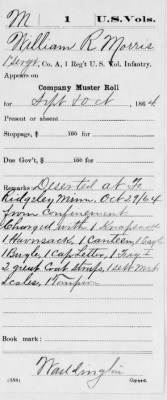 M 1 U.S. Vols.
William R Morris
Sergt, Co. A, 1 Reg't U.S. Vol. Infantry.
Appears on
Company Muster Roll
for Sept & Oct, 1864
Present or absent
Stoppage, $ 100 for
Due Gov't, $ 100 for
Remarks: Deserted at Ft
Ridgeley Minn. Oct 29/64
from confinement
Charged with 1 Knapsack
1 Haversack, 1 Canteen, 1 Eagle
1 Bugle, 1 Cap Letter, 1
2 great Coat Straps, 1 sett
Scales, 1 Tompion
Book mark:
(358) Copyist.